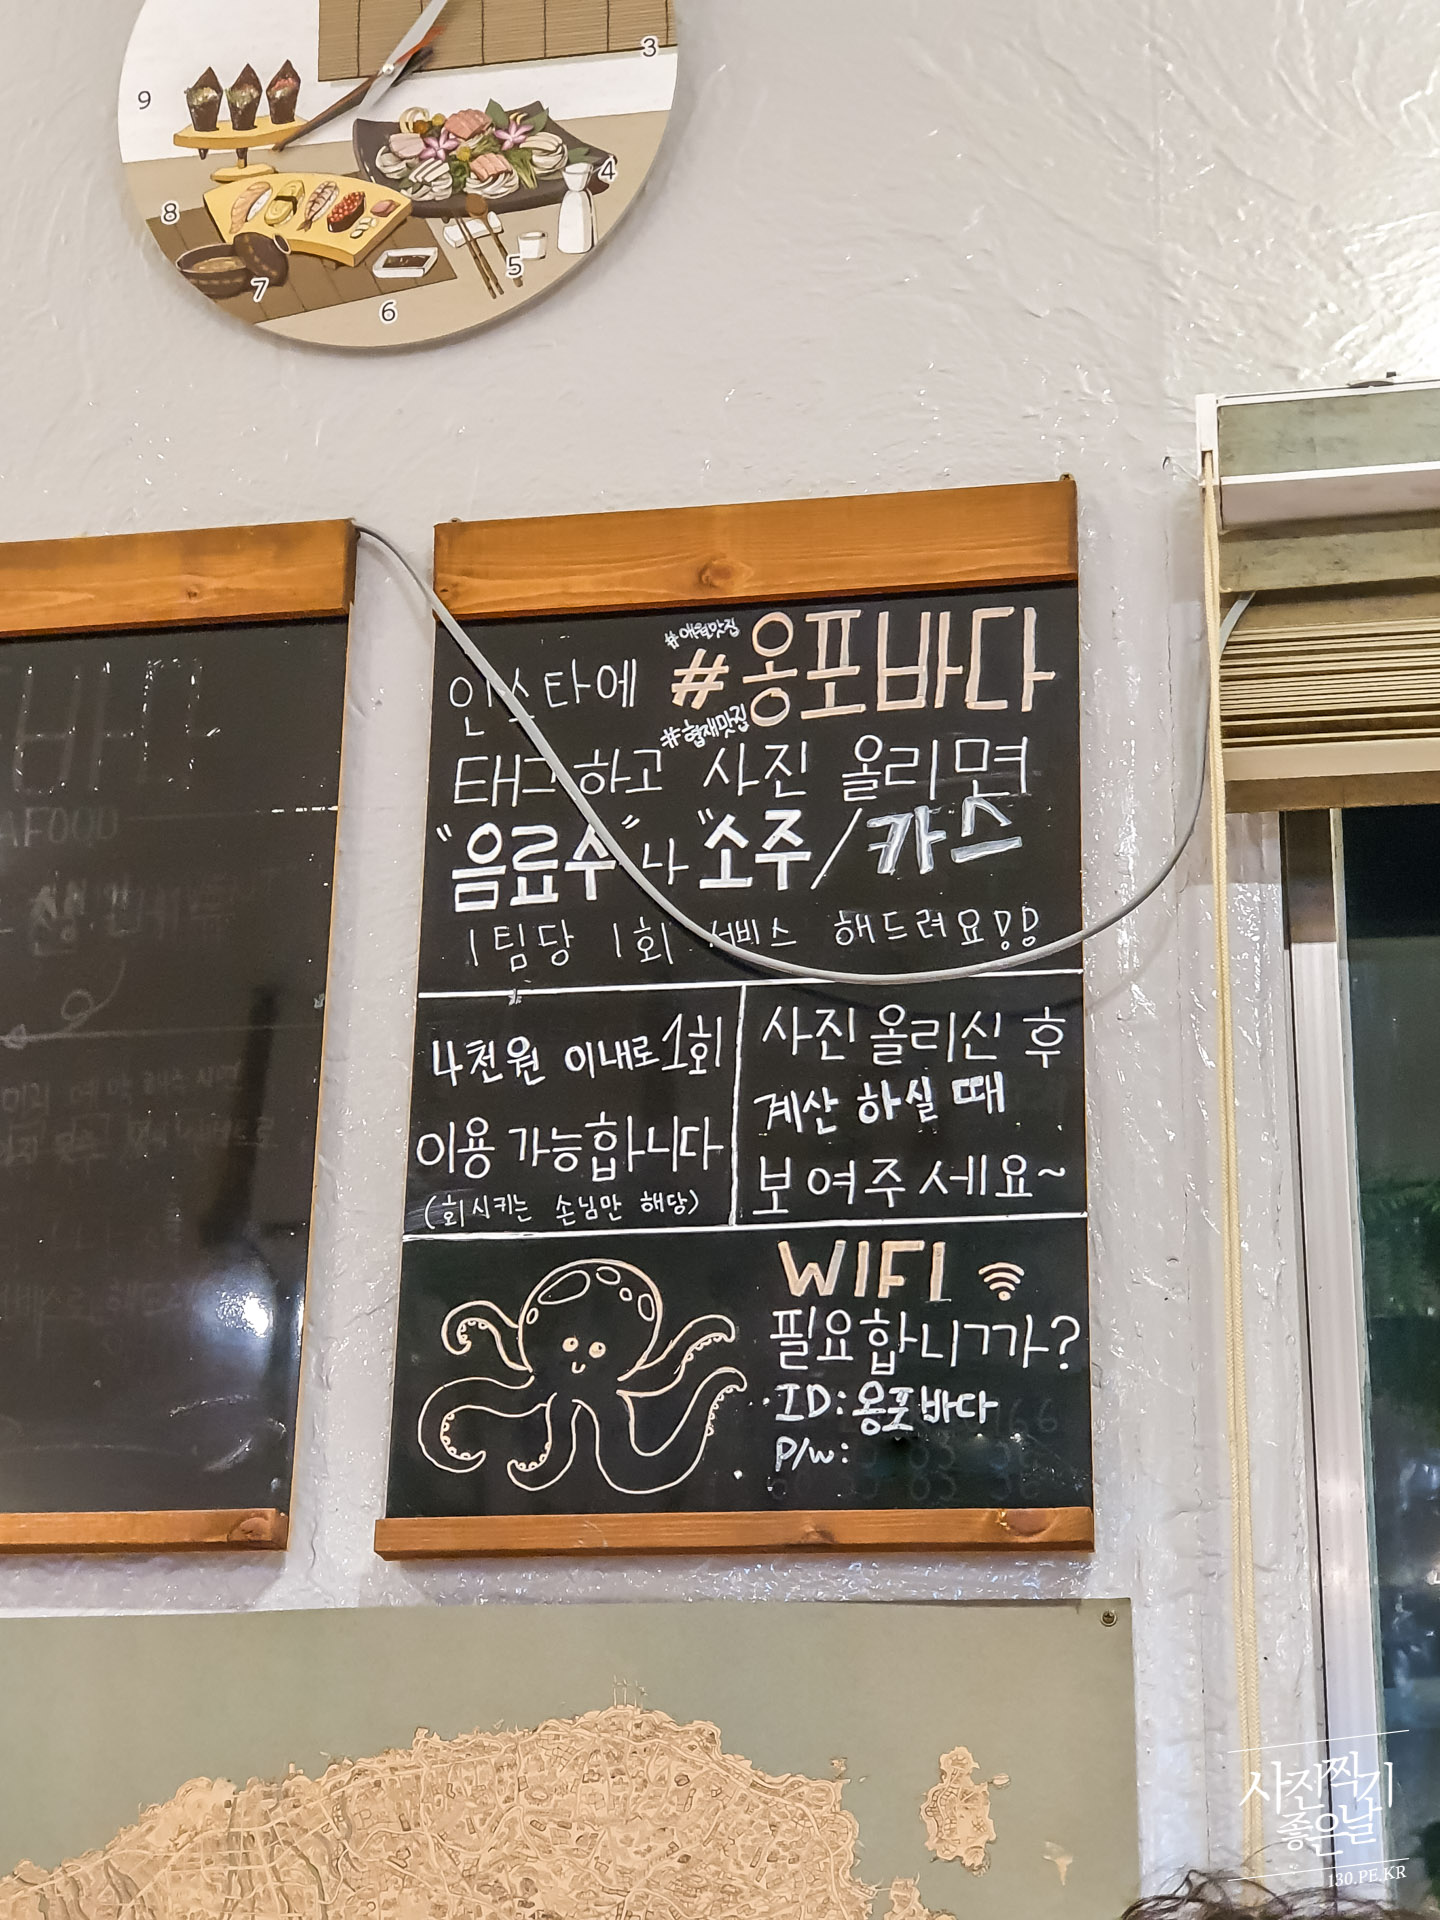 9
3
4
8
5
7
6
#애월맛집
인스타에 #옹포바다
#협재맛집
태그하고 사진 올리면
"음료수"나 "소주/카스
1팀당 1회 서비스 해드려요!!
4천원 이내로 1회
이용 가능합니다
(회 시키는 손님만 해당)
사진 올리신 후
계산 하실 때
보여주세요~
WIFI
필요합니까?
ID: 옹포바다
P/W:
바다
AFOOD
사진찍기
좋은날
130.PE.KR